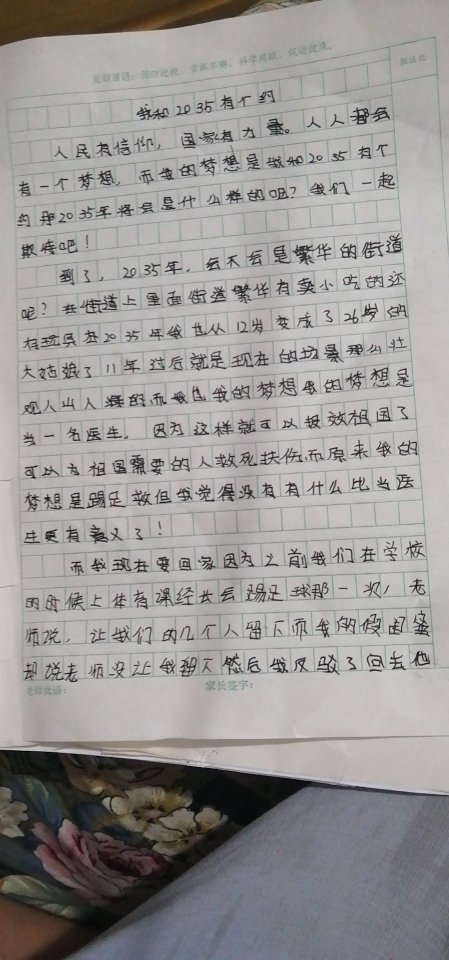 光明寄语：预防近视，常抓不懈，科学用眼，促进健康。
批注栏
我和2035有个约
人民有信仰，国家有力量。人人都会
有一个梦想，而我的梦想是我和2035有个
约那2035年将会是什么样的呢？我们一起
期待吧！
到了，2035年，会不会是繁华的街道
呢？在街道上里面街道繁华有卖小吃的还
有玩具在2035年我也从12岁变成了26岁的
大姑娘了11年过后就是现在的场景那么壮
观人山人海的而我也我的梦想我的梦想是
当一名医生。因为这样就可以报效祖国了
可以为祖国需要的人救死扶伤而原来我的
梦想是踢足救但我觉得没有有什么比当医
生更有意义了！
而我现在要回家因为之前我们在学校
的时候上体育课经长会踢足球那一次，老
师说，让我们的几个人留下而我的假闺蜜
却说老师没让我留下然后我反驳了回去他
老师批语：
家长签字：